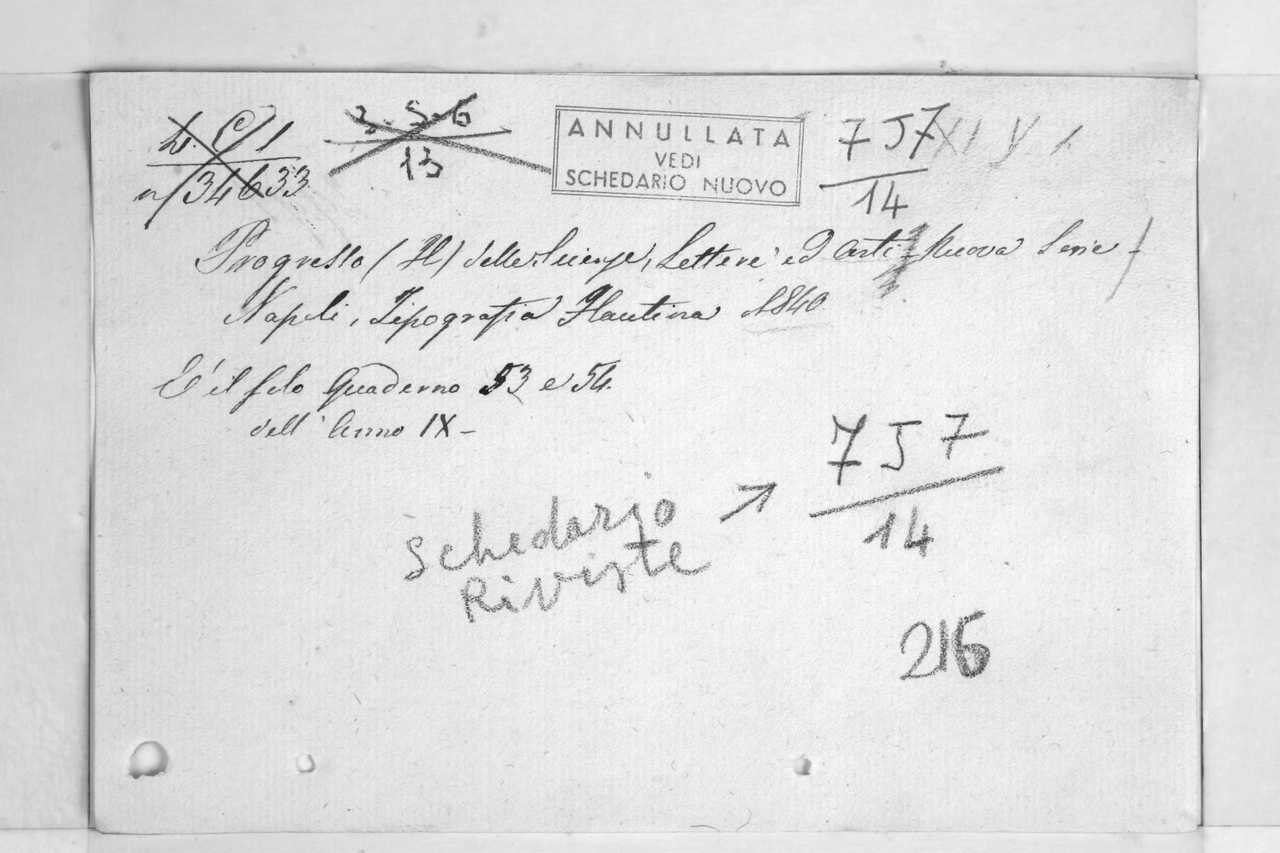 3-5-6
13
n/34633
ANNULLATA
VEDI
SCHEDARIO NUOVO
757
14
Progresso (Il) delle Scienze, Lettere ed Arti - Nuova Serie -
Napoli, Tipografia Flautina 1840
E' il solo Quaderno 53 e 54
dell' Anno IX -
757
14
Schedario
Riviste
216